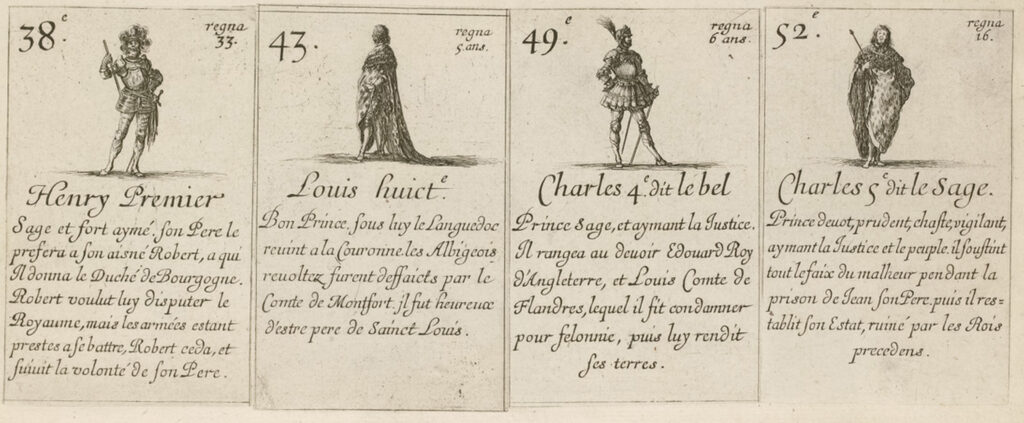 38.e
regna
33.
Henry Premier
Sage et fort aymé. son Pere le
prefera a son aisné Robert, a qui
Il donna le Duché de Bourgogne.
Robert voulut luy disputer le
Royaume, mais les armées estant
prestes a se battre, Robert ceda, et
suivit la volonté de son Pere.
43.
regna
5. ans.
Louis huict.e
Bon Prince. sous luy le Languedoc
revint a la Couronne. les Albigeois
revoltez furent deffaicts par le
Comte de Montfort. jl fut heureux
d'estre pere de Sainct Louis.
49.e
regna
6 ans.
Charles 4.e dit le bel
Prince Sage, et aymant la Justice.
Il rangea au devoir Edouard Roy
d'Angleterre, et Louis Comte de
Flandres, lequel il fit condamner
pour felonnie, puis luy rendit
ses terres.
52.e
regna
16.
Charles 5e dit le Sage.
Prince devot, prudent, chaste, vigilant,
aymant la Justice et le peuple. il soustint
tout le faix du malheur pendant la
prison de Jean son Pere. puis il res=
tablit son Estat, ruiné par les Rois
precedens.